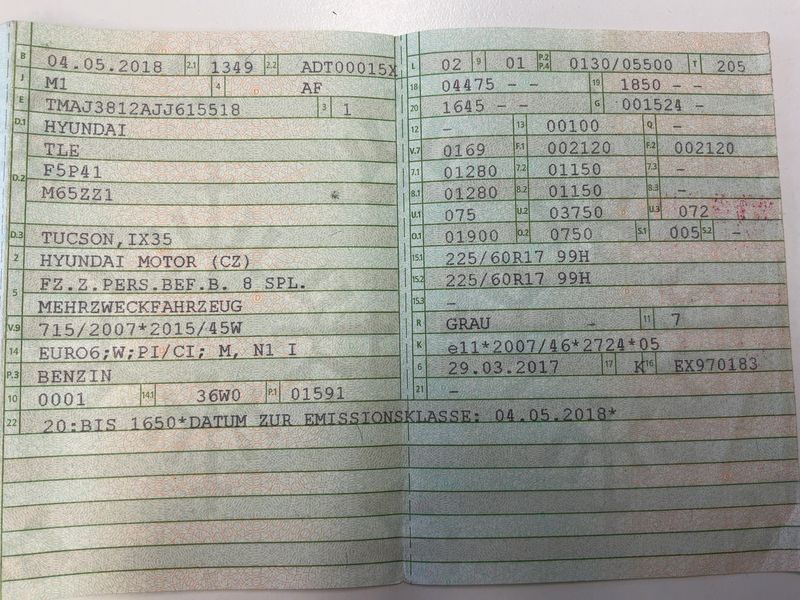 B 04.05.2018 2.1 1349 2.2 ADT00015X
J M1 4 AF
E TMAJ3812AJJ615518 3 1
D.1 HYUNDAI
TLE
D.2 F5P41
M65ZZ1
D.3 TUCSON,IX35
2 HYUNDAI MOTOR (CZ)
5 FZ.Z.PERS.BEF.B. 8 SPL.
MEHRZWECKFAHRZEUG
V.9 715/2007*2015/45W
14 EURO6;W;PI/CI; M, N1 I
P.3 BENZIN
10 0001 14.1 36W0 P.1 01591
L 02 9 01 P.2 P.4 0130/05500 T 205
18 04475 - - 19 1850 - -
20 1645 - - G 001524 -
12 - 13 00100 Q -
V.7 0169 F.1 002120 F.2 002120
7.1 01280 7.2 01150 7.3 -
8.1 01280 8.2 01150 8.3 -
U.1 075 U.2 03750 U.3 072
O.1 01900 O.2 0750 S.1 005 S.2 -
15.1 225/60R17 99H
15.2 225/60R17 99H
15.3 -
R GRAU - 11 7
K e11*2007/46*2724*05
6 29.03.2017 17 K 16 EX970183
21 -
22 20:BIS 1650*DATUM ZUR EMISSIONSKLASSE: 04.05.2018*